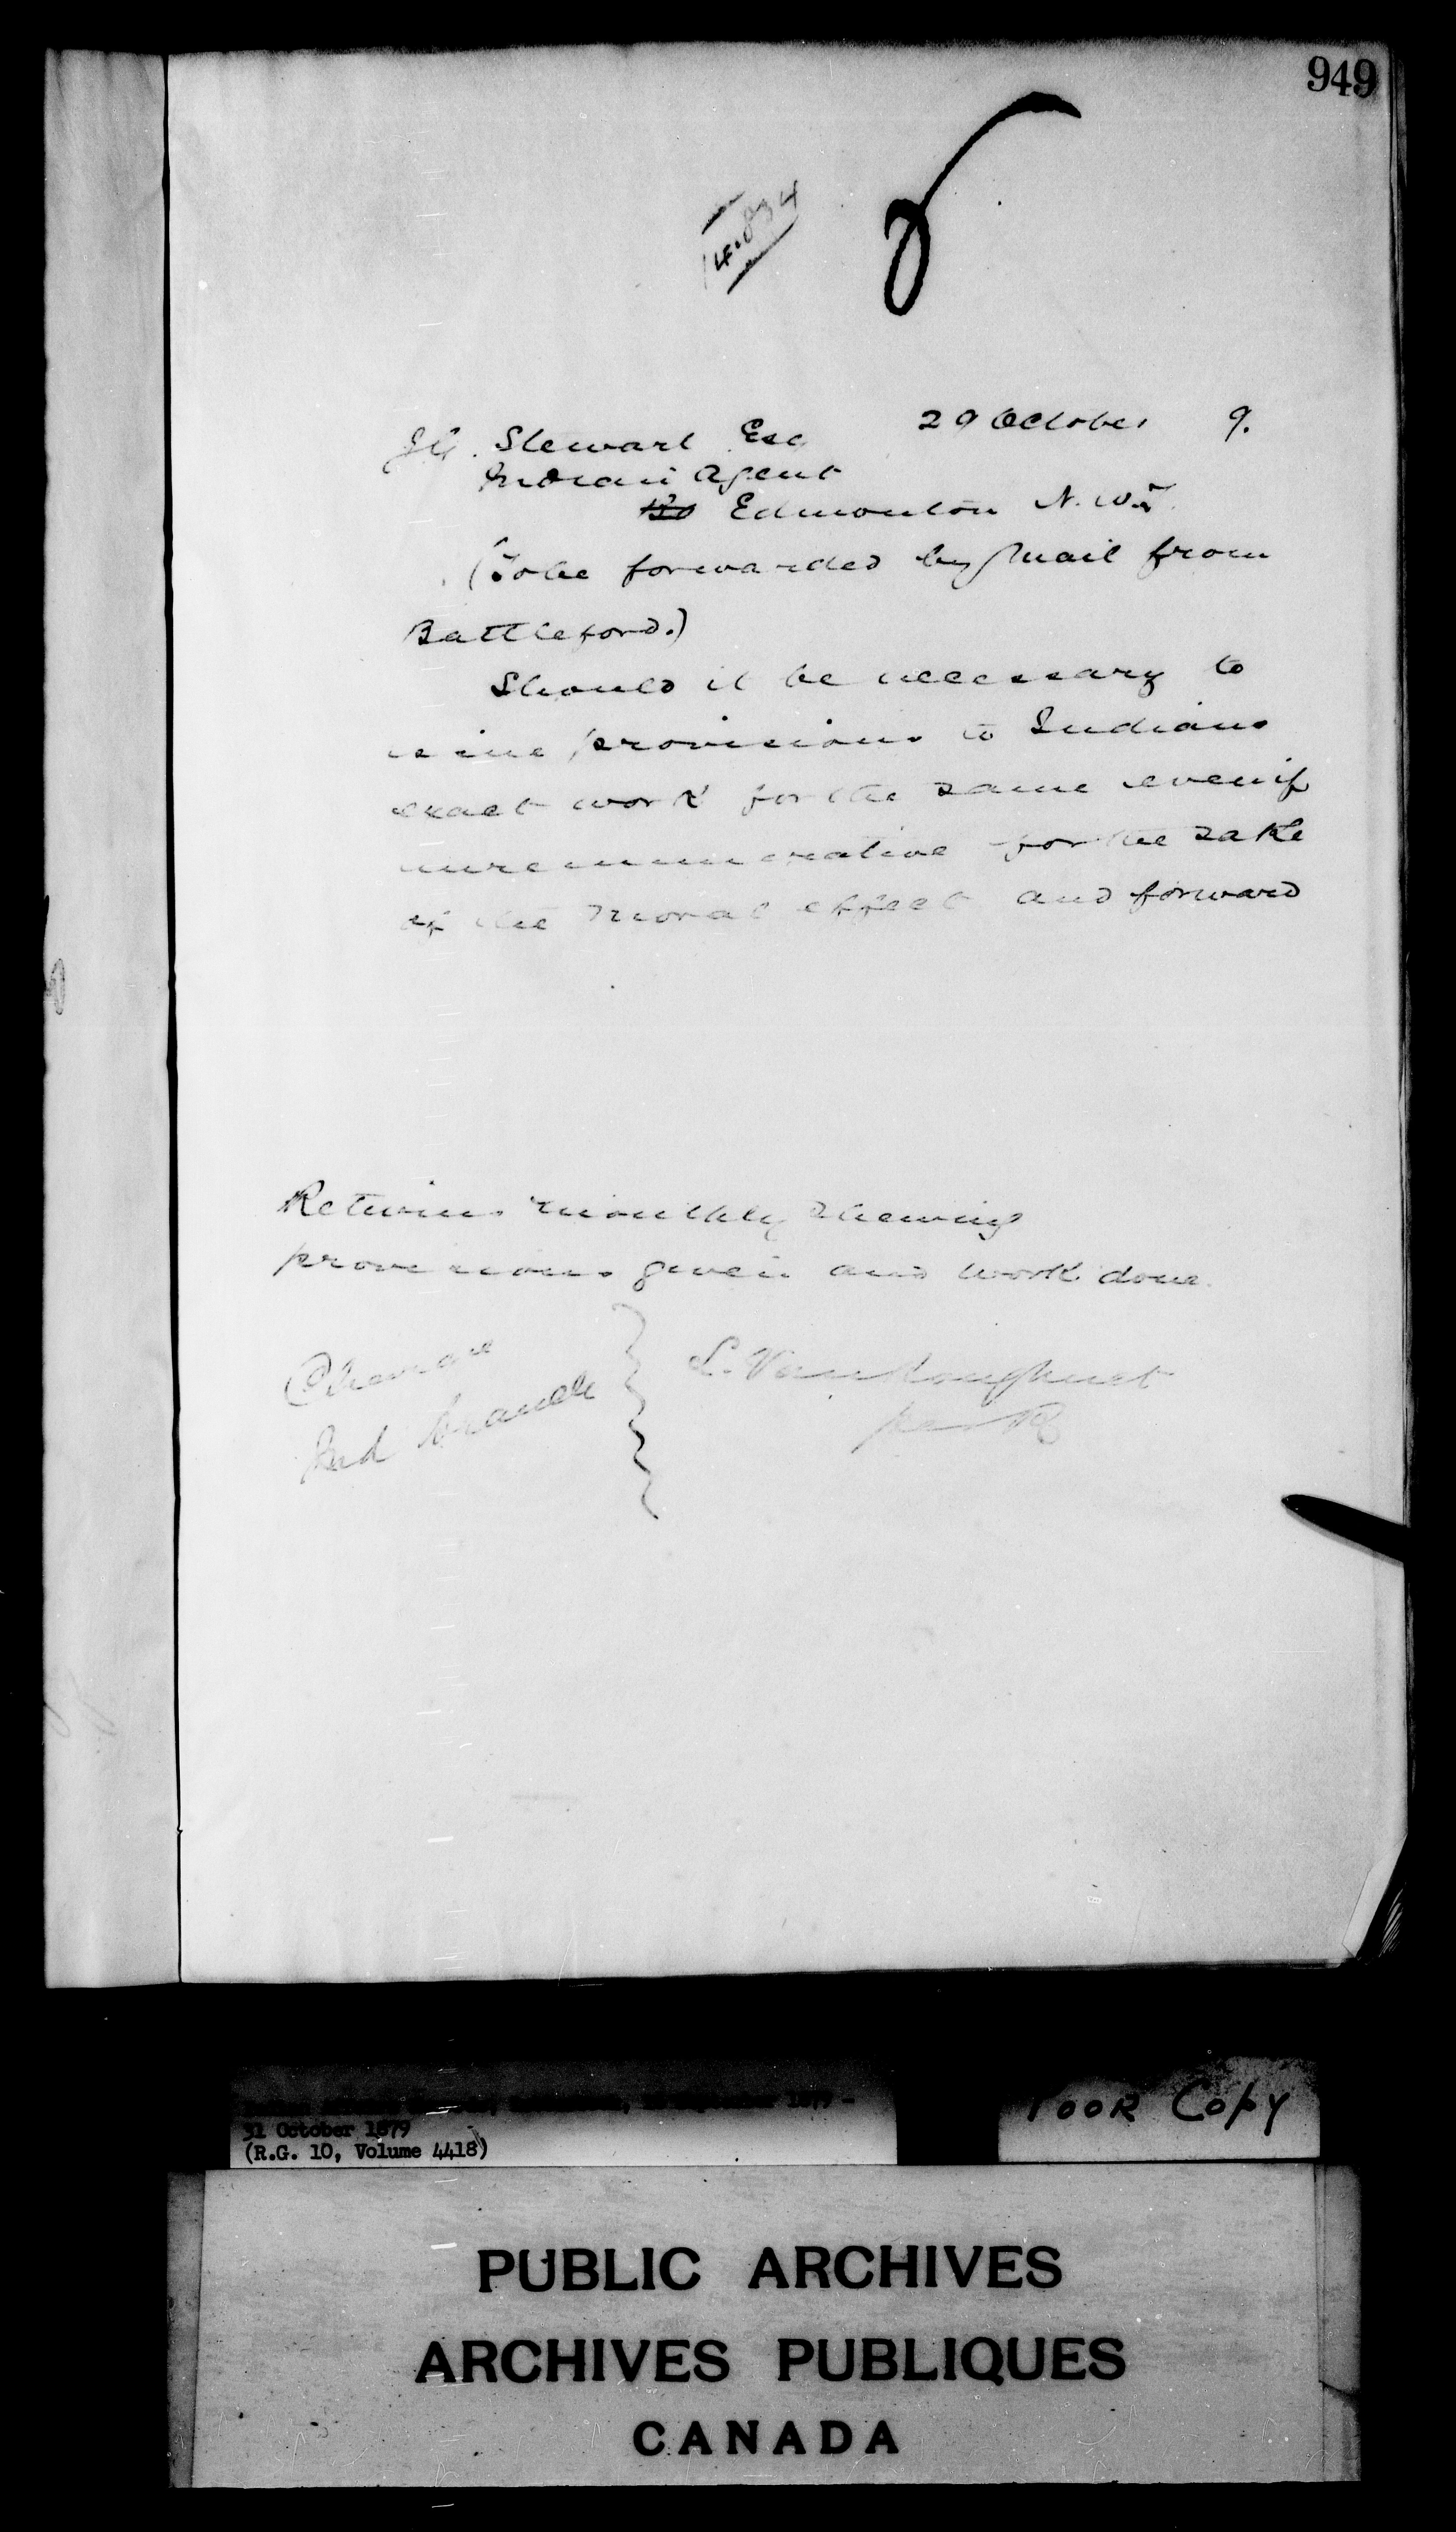 949
14.834
29 October 9.
J.G. Stewart Esq
Indian Agent
Edmonton N.W.T.
(To be forwarded by Mail from
Battleford.)
Should it be necessary to
issue provisions to Indians
exact work for the same even if
unremunerative for the sake
of the moral effect and forward
Returns monthly shewing
provisions given and work done.
L. Vankoughnet
Ind branch
per
31 October 1879
(R.G. 10, Volume 4418)
POOR COPY
PUBLIC ARCHIVES
ARCHIVES PUBLIQUES
CANADA